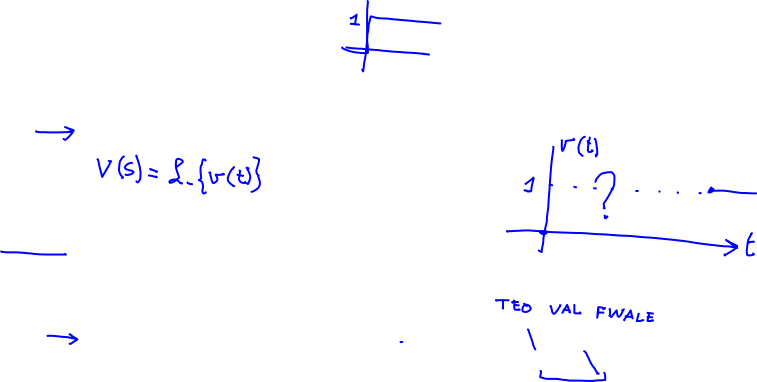 1
v(t)
V(s) = L-{v(t)}
1 . . ? . . . .
t
TEO VAL FINALE